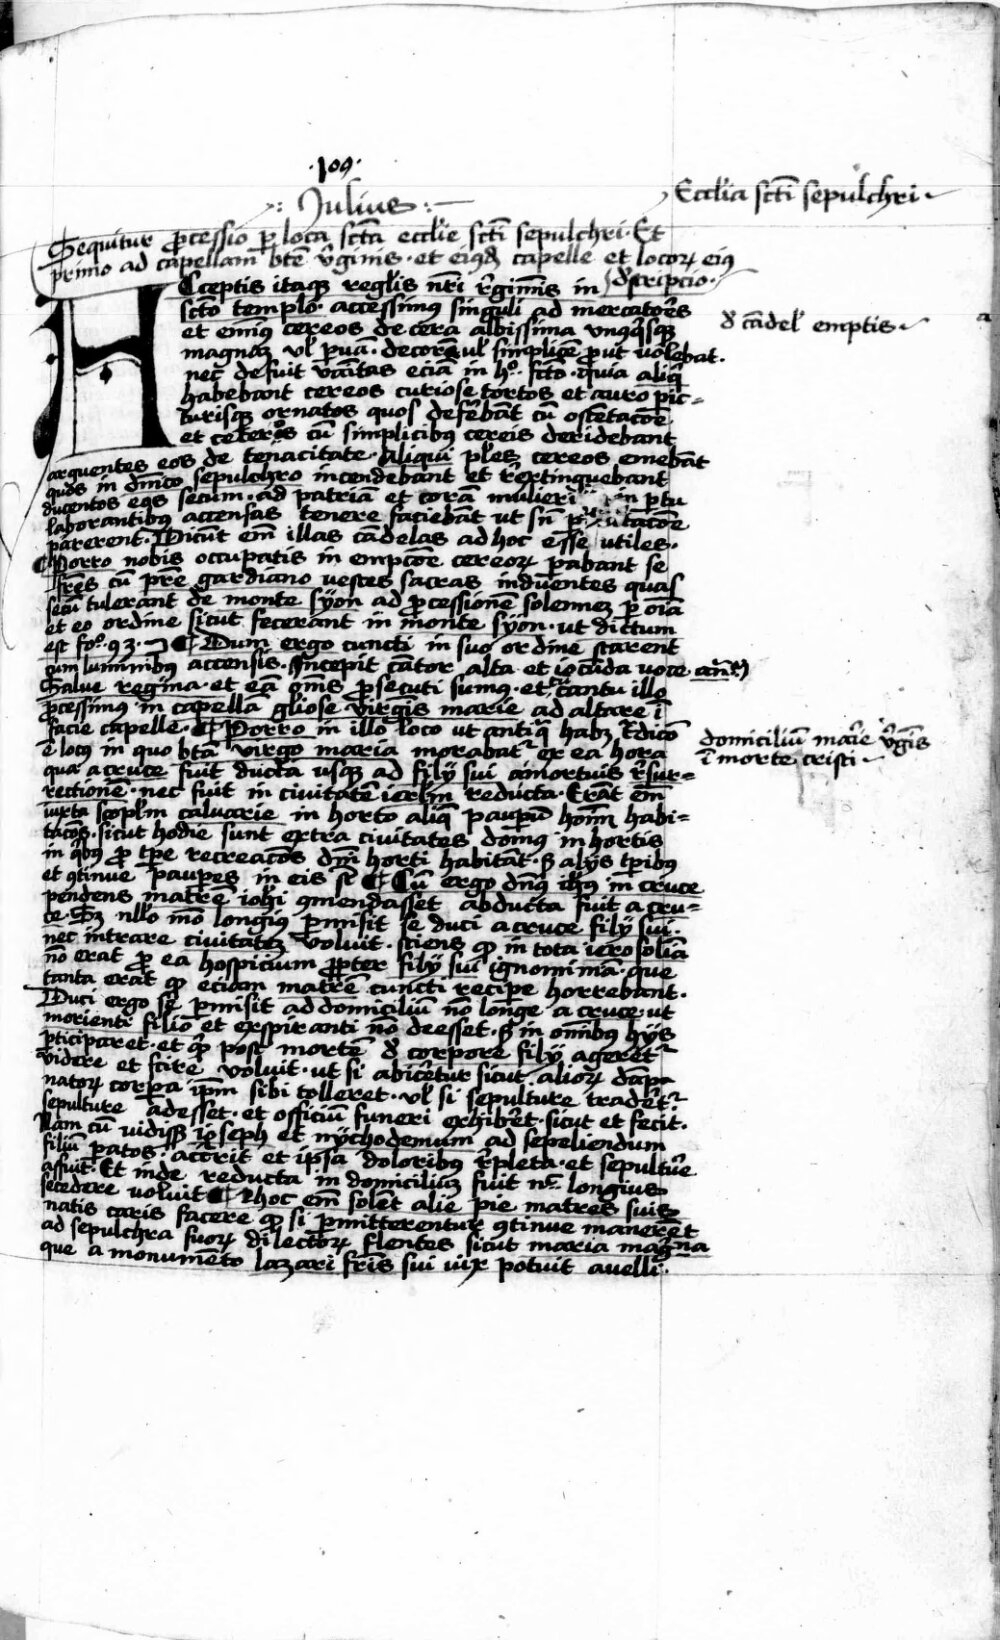 ·109·
Julius
Ecclia scti sepulchri
Sequitur pcessio p loca scta ecclie scti sepulchri· Et
primo ad capellam bte vginis· et eiusd capelle et locorꝝ eiꝰ
descripcio·
ACceptis itaqꝫ reglis nri rgiminis in
scto templo· accessimꝰ singuli ad mercatores
et emimꝰ cereos de cera albissima vnꝰqsqꝫ
de cadel emptis
magnaꝫ vl puam· decoram ul simplice put volebat·
nec defuit vanitas ecia in hoc fcto· quia aliq
habebant cereos curiose tortos et auro pic=
turisqꝫ ornatos quos deferebat cu ostetacoe
et ceteros cu simplicibꝰ cereis deridebant
arguentes eos de tenacitate· Aliqui ples cereos emebat
quos in dnico sepulchro incendebant et rextinguebant
ducentes eos secum· ad patria et cora mulieri in ptu
laborantibꝰ accensas tenere faciebat ut sn
parerent· Dicut em illas cadelas ad hoc esse utiles·
¶ Porro nobis occupatis in empcoe cereorꝝ pabant se
fres cu pre gardiano vestes sacras induentes quas
secu tulerant de monte syon ad pcessione solenneꝫ p oia
et eo ordine sicut fecerant in monte syon· ut dictum
est fo· 93· ¶ Dum ergo cuncti in suo ordine starent
cum luminibꝰ accensis· Incepit cator alta et iocuda uoce· an
Salve regina· et ea oms psecuti sumꝰ· et cu cantu illo
pcessimꝰ in capella gliose virgis marie ad altare i
facie capelle· ¶ Porro in illo loco ut antiq habꝫ tdico
e locꝰ in quo bta virgo maria morabat ex ea hora
domiciliu marie vginis
i morte cristi
qua a cruce fuit ducta usqꝫ ad filij sui a mortuis rsur=
rectione· nec fuit in civitate ierlm reducta· Erat em
iuxta scoplm calvarie in horto aliq paupu homi habi=
tacos· sicut hodie sunt extra civitates domus in hortis
in qbꝰ p tpe recreacois dni horti habitat· s alijs tpibꝰ
et ꝯtinue paupes in eis st ¶ Cu ergo dnꝰ ihꝰ in cruce
pendens matre iohi ꝯmendasset abducta fuit a cru=
ce· Sꝫ nllo mo longiꝰ pmisit se duci a cruce filij sui·
nec intrare civitateꝫ voluit· sciens qꝫ in tota ierosolia
no erat p ea hospicium ppter filij sui ignominia· que
tanta erat qꝫ eciam matre cuncti recipe horrebant·
Duci ergo se pmisit ad domiciliu no longe a cruce· ut
morienti filio et expiranti no deesset· s in omibus hijs
pticiparet· et qd post morte de corpore filij ageret
videre et scire voluit· ut si abiceretur sicut aliorꝝ dapa
natorꝝ corpa ipm sibi tolleret· vl si sepulture traderet
sepulture adesset· et officiu funeri exhiberet· sicut et fecit·
Nam cu vidissꝫ ioseph et nychodemum ad sepeliendum
filiu patos· accrit et ipsa doloribus rpleta· et sepulture
affuit· Et inde reducta in domiciliuꝫ fuit nec longius
secedere voluit ¶ Hoc em solet alie pie matres suis
natis caris facere qꝫ si pmitterentur ꝯtinue maneret
ad sepulchra suorꝝ dilectorꝝ flentes sicut maria magna
que a monumeto lazari fris sui vix potuit avelli·